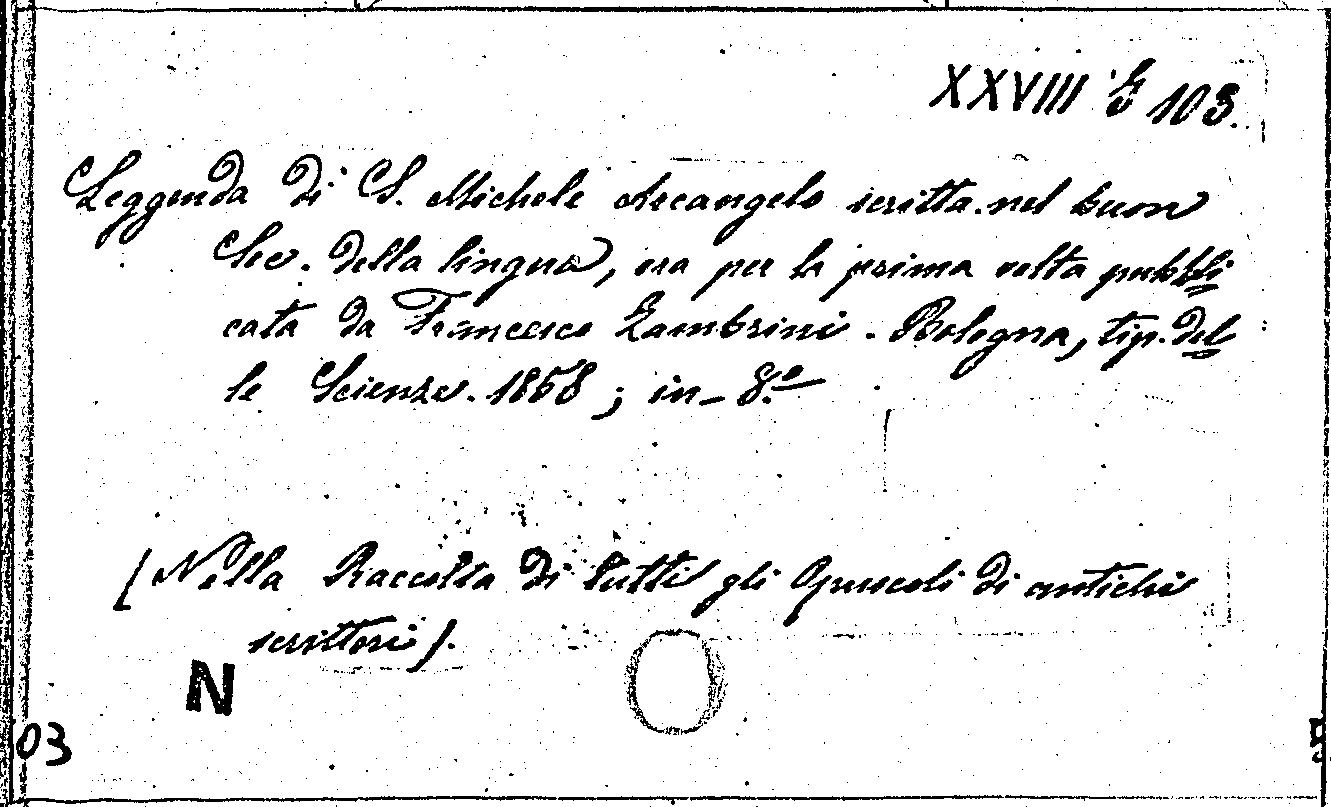 XXVIII G 103.
Leggenda di S. Michele Arcangelo scritta nel buon
Sec. della lingua, ora per la prima volta pubbli
cata da Francesco Zambrini. Bologna, tip. del
le Scienze. 1858; in-8.º
[Nella Raccolta di tutti gli Opuscoli di antichi
scrittori].
N
03